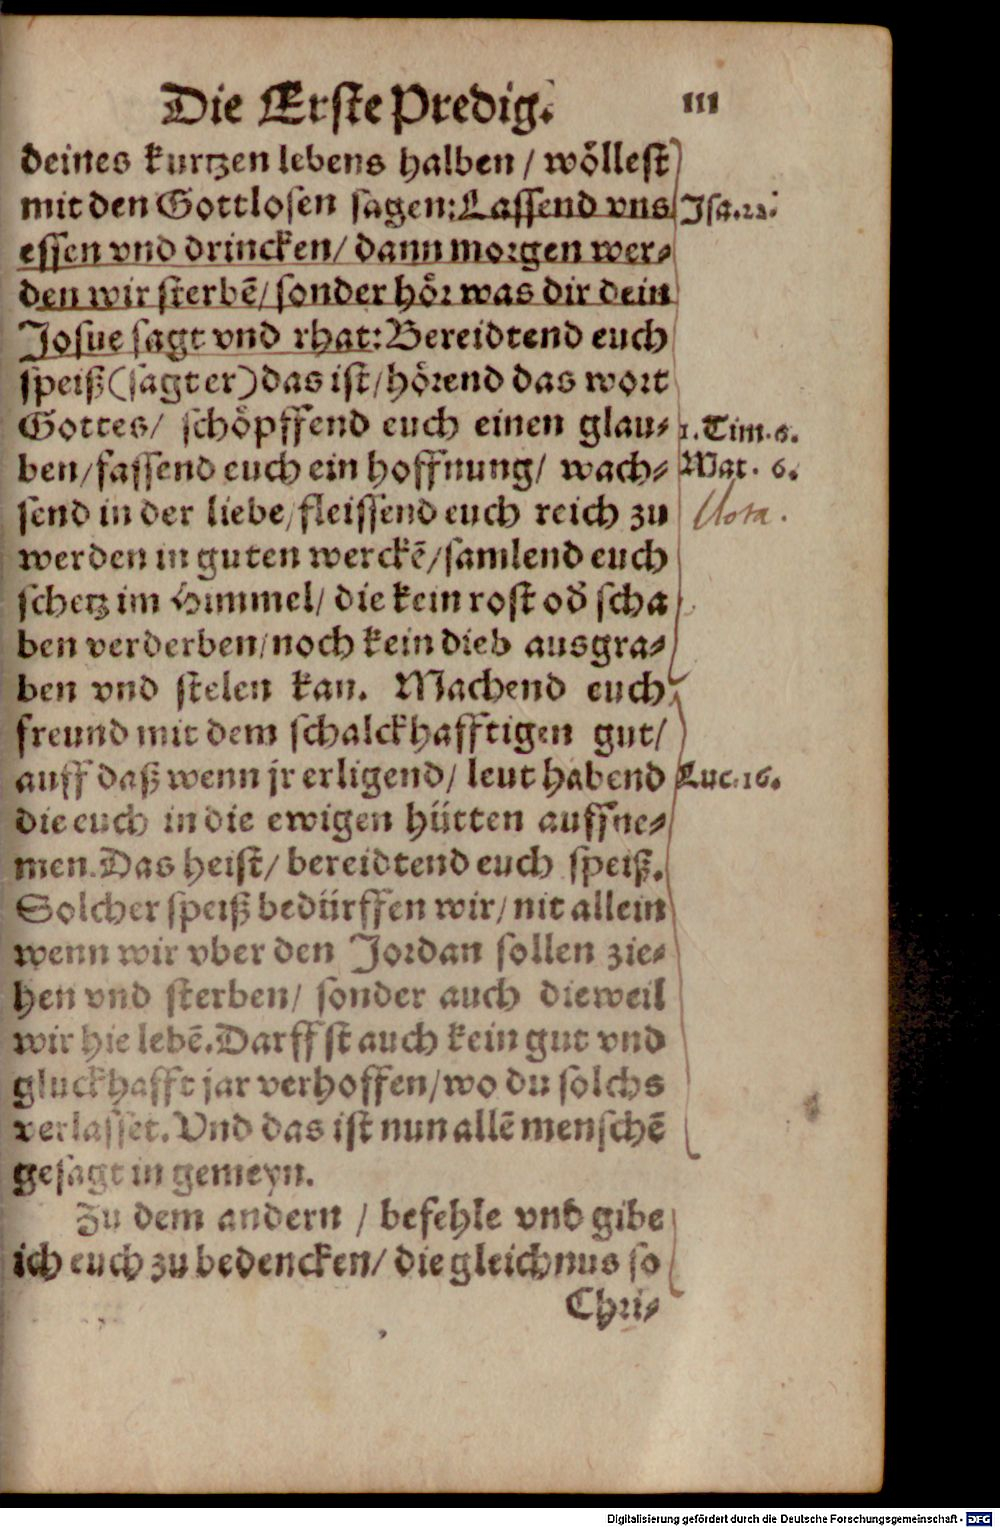 Die Erste Predig. III
deines kurtzen lebens halben / wöllest
mit den Gottlosen sagen: Lassend vns Isa.22.
essen vnd drincken / dann morgen wer-
den wir sterbē / sonder hör was dir dein
Josue sagt vnd rhat: Bereidtend euch
speiß (sagt er) das ist / hörend das wort
Gottes / schöpffend euch einen glau- 1. Tim. 6.
ben / fassend euch ein hoffnung / wach- Mat. 6.
send in der liebe / fleissend euch reich zu Nota.
werden in guten werckē / samlend euch
schetz im Himmel / die kein rost od̃ scha
ben verderben / noch kein dieb ausgra-
ben vnd stelen kan. Machend euch
freund mit dem schalckhafftigen gut /
auff daß wenn jr erligend / leut habend Luc. 16.
die euch in die ewigen hütten auffne-
men. Das heist / bereidtend euch speiß.
Solcher speiß bedürffen wir / nit allein
wenn wir vber den Jordan sollen zie-
hen vnd sterben / sonder auch dieweil
wir hie lebē. Darffst auch kein gut vnd
gluckhafft jar verhoffen / wo du solchs
verlasset. Vnd das ist nun allē menschē
gesagt in gemeyn.
Zu dem andern / befehle vnd gibe
ich euch zu bedencken / die gleichnus so
Chri-
Digitalisierung gefördert durch die Deutsche Forschungsgemeinschaft - DFG